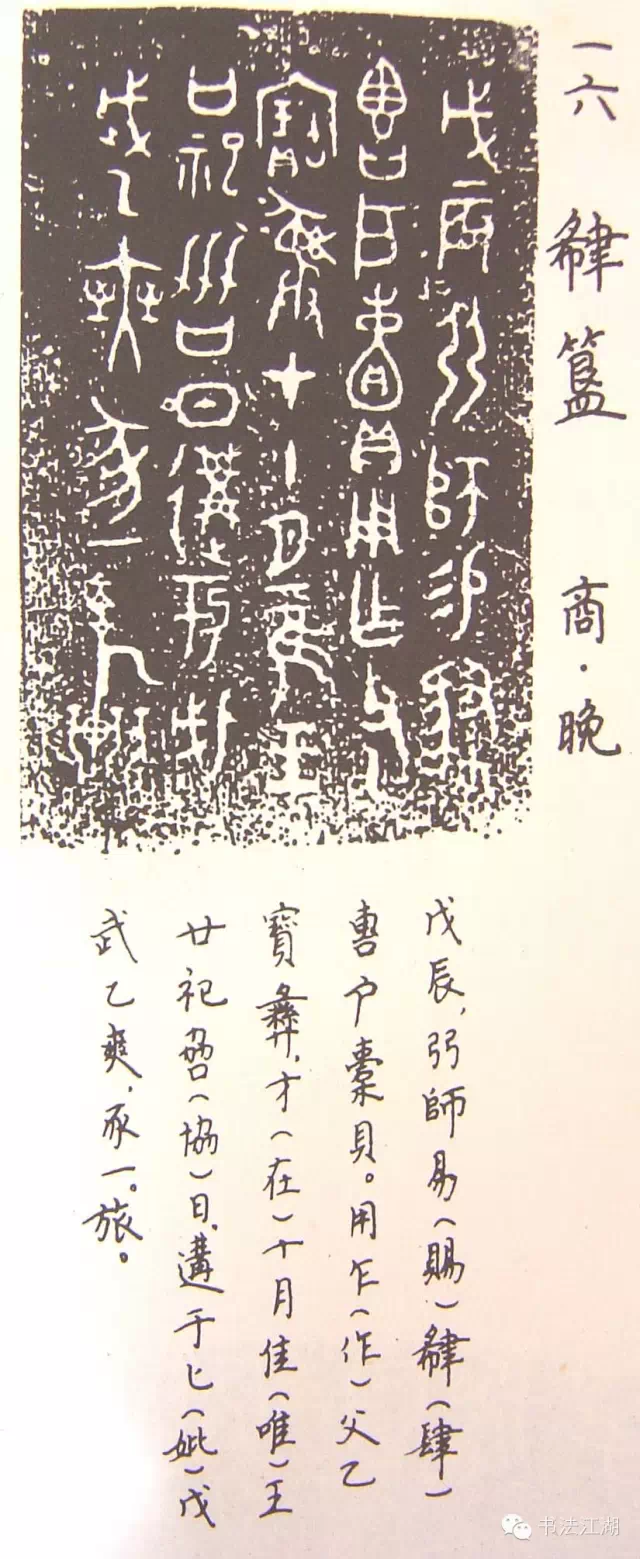 一六 䋣簋 商·晚
戊辰，弜師易（賜）䋣（肆）
䵼户橐貝。用乍（作）父乙
寶彝，才（在）十月隹（唯）王
廿祀，劦（協）日，遘于匕（妣）戊
武乙奭，豕一。旅。
书法江湖